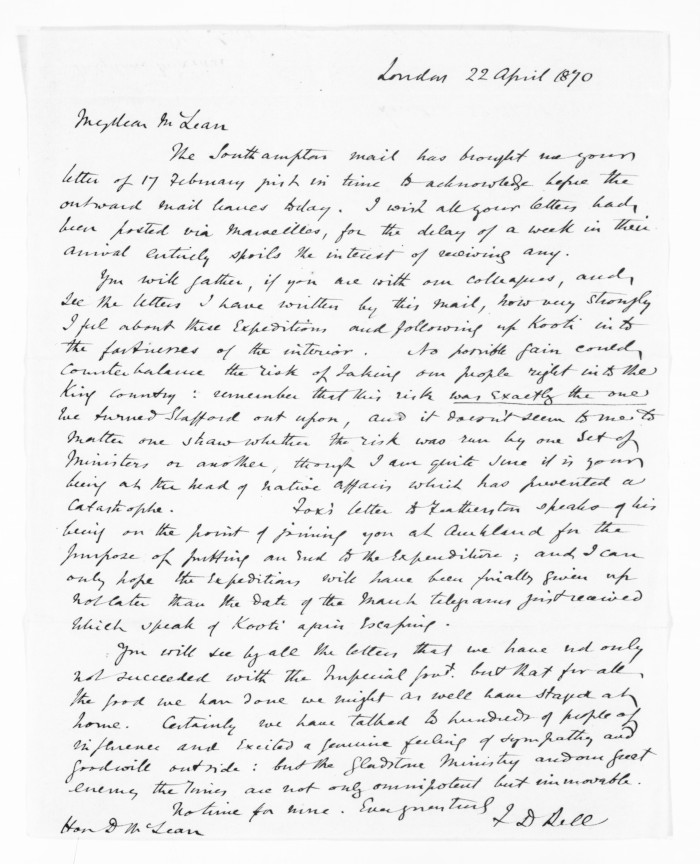 London 22 April 1870
My dear McLean
The Southampton mail has brought me your
letter of 17 February just in time to acknowledge before the
outward mail leaves today. I wish all your letters had
been posted via Marseilles, for the delay of a week in their
arrival entirely spoils the interest of receiving any.
You will gather, if you are with our colleagues, and
see the letters I have written by this mail, how very strongly
I feel about these Expeditions and following up Kooti into
the fastnesses of the interior. No possible gain could
counterbalance the risk of taking our people right into the
King country: remember that this risk was exactly the one
we turned Stafford out upon, and it doesn't seem to me to
matter one straw whether the risk was run by one set of
Ministers or another, though I am quite sure it is your
being at the head of native affairs which has prevented a
catastrophe. Fox's letter to Featherston speaks of his
being on the point of joining you at Auckland for the
purpose of putting an End to the Expenditure; and I can
only hope the Expeditions will have been finally given up
not later than the date of the March telegrams just received
which speak of Kooti again Escaping.
You will see by all the letters that we have not only
not succeeded with the Imperial Govt. but that for all
the good we have done we might as well have stayed at
home. Certainly we have talked to hundreds of people of
influence and Excited a genuine feeling of sympathy and
goodwill outside: but the Gladstone Ministry and our great
enemy the Times are not only omnipotent but immovable.
No time for more. Ever yours truly
F D Bell
Hon D McLean